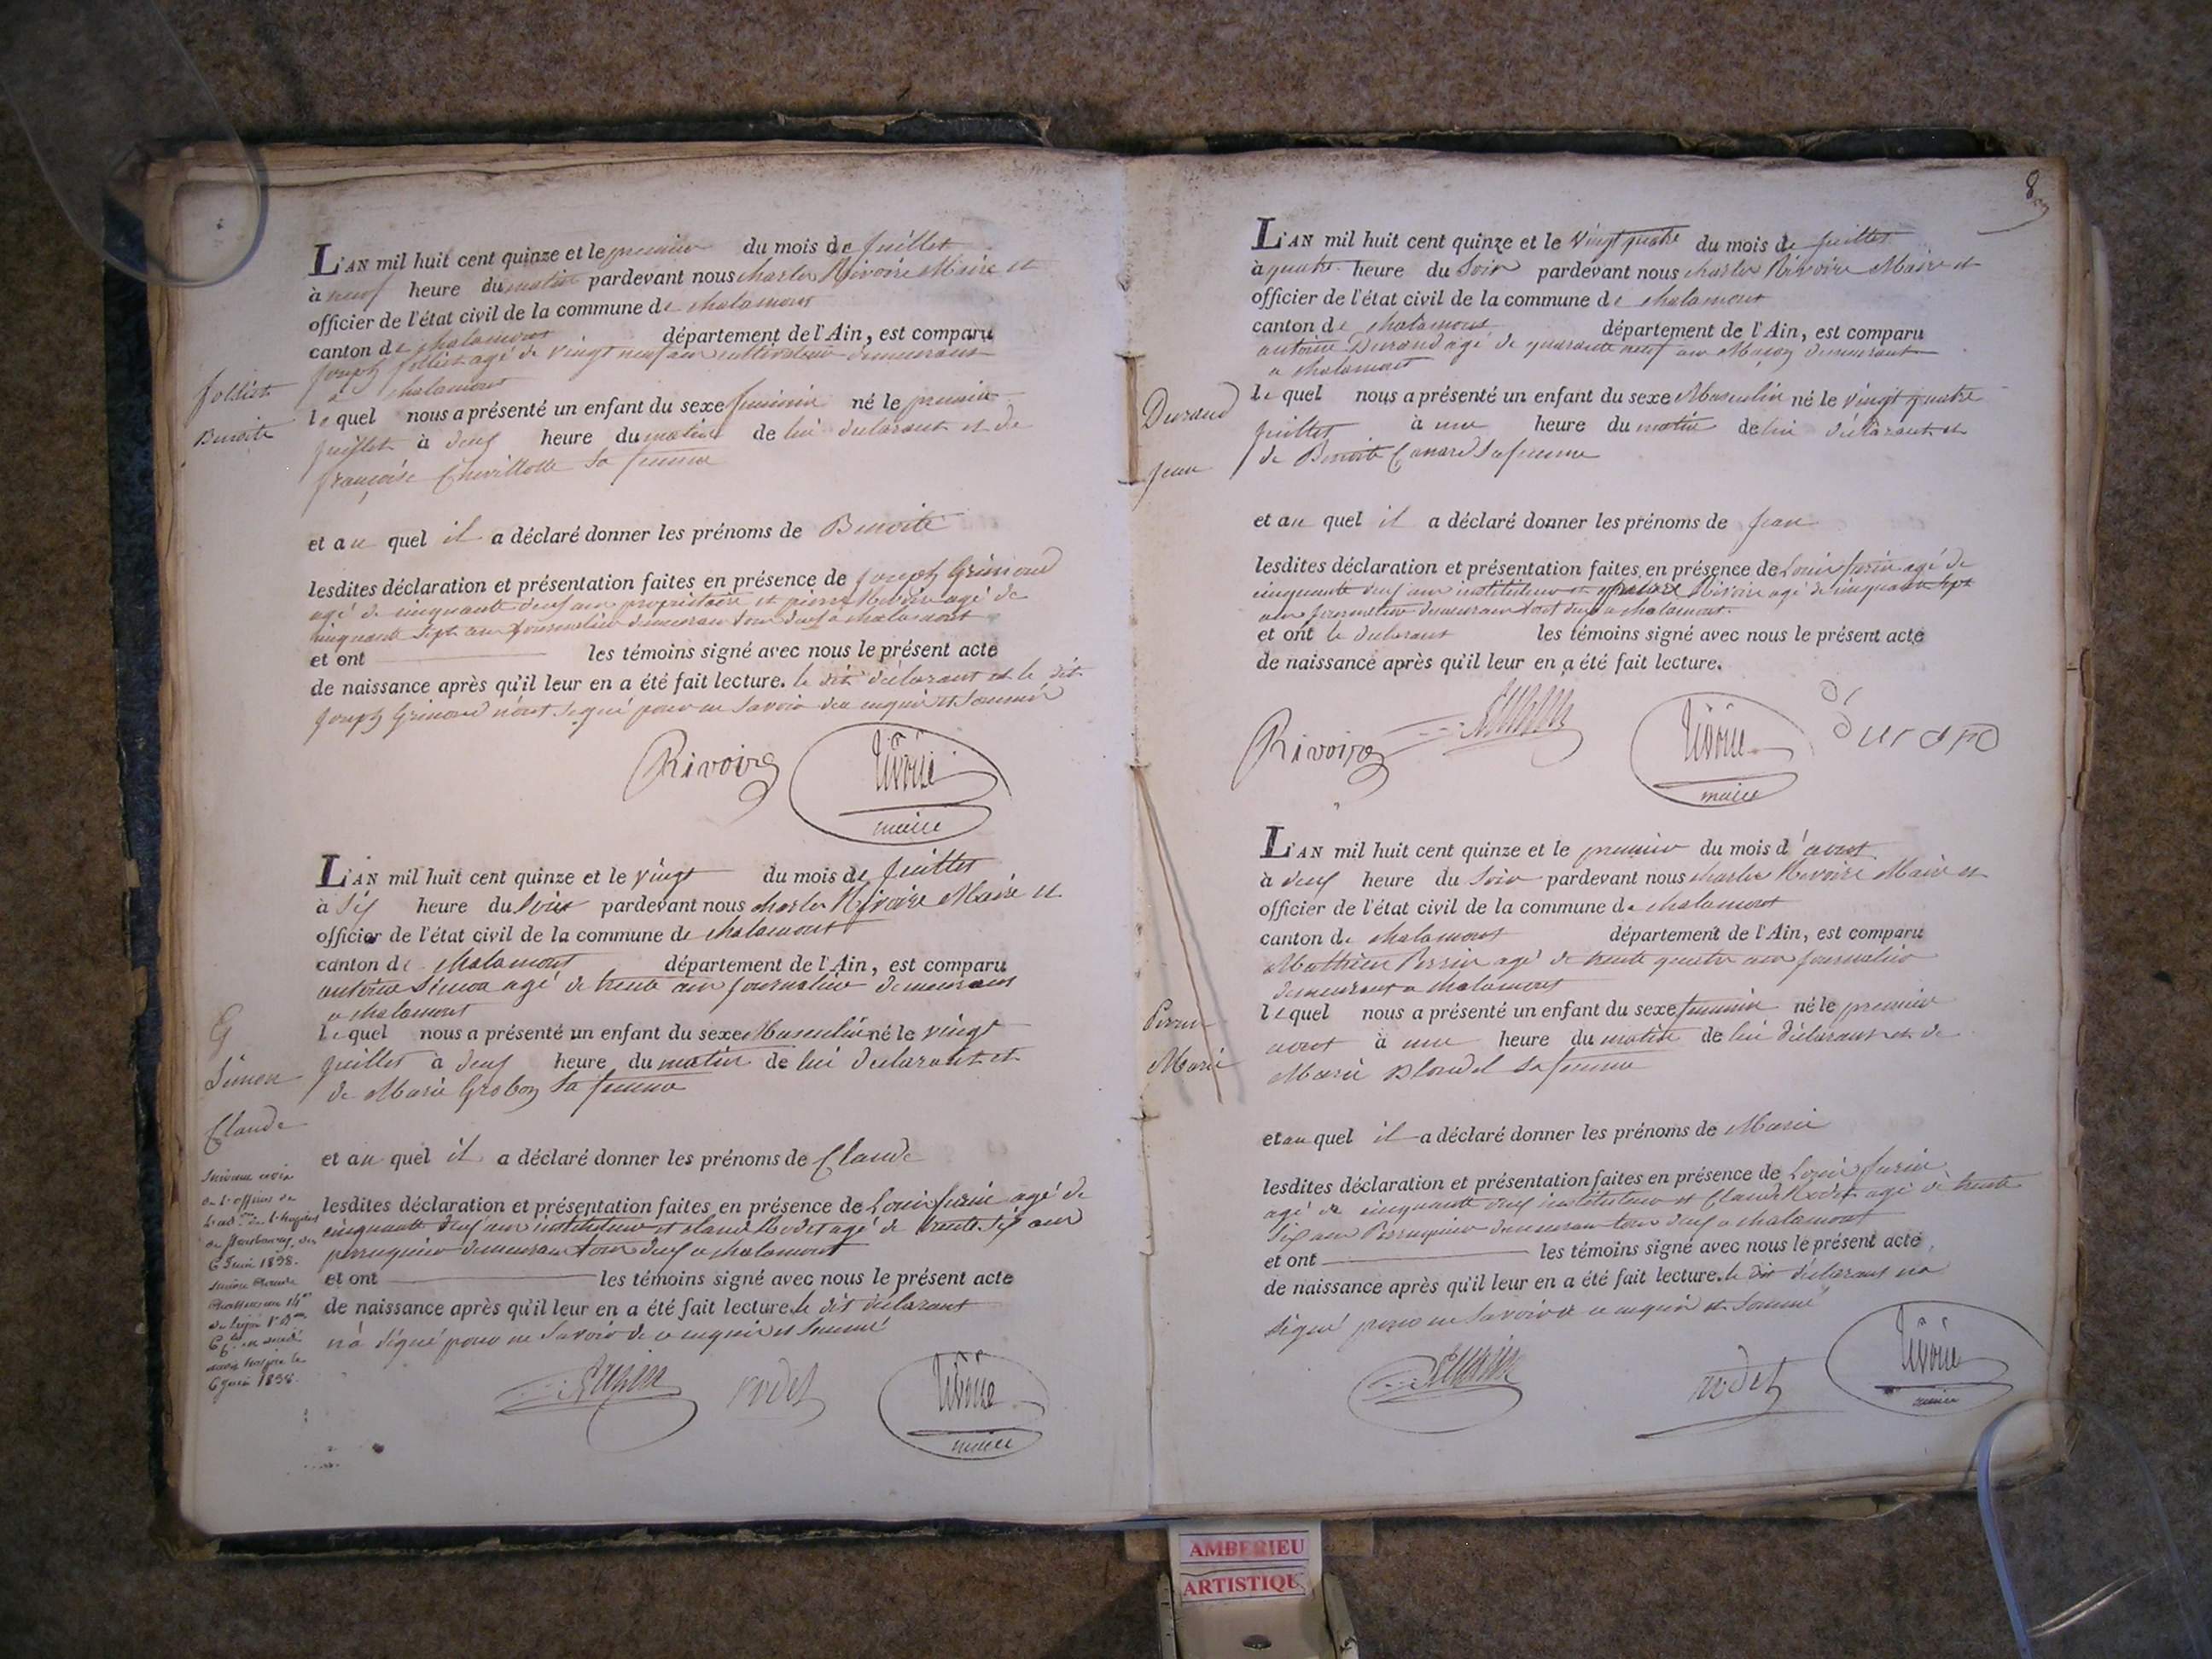 L'AN mil huit cent quinze et le premier du mois de juillet
à neuf heure du matin pardevant nous charles Rivoire Maire et
officier de l'état civil de la commune de chalamont
canton de chalamont département de l'Ain, est comparu
joseph folliet agé de vingt neuf an cultivateur demeurant
à chalamont
folliet
Benoite
le quel nous a présenté un enfant du sexe feminin né le premier
juillet à deux heure du matin de lui declarant et de
françoise Chevillotte sa femme
et au quel il a déclaré donner les prénoms de Benoite
lesdites déclaration et présentation faites en présence de joseph Grimond
agé de cinquante deux ans propriétaire et pierre Rivoire agé de
cinquante sept ans journalier demeurant tous deux a chalamont
et ont les témoins signé avec nous le présent acte
de naissance après qu'il leur en a été fait lecture. le dit déclarant et le dit
joseph Grimond n'ont signé pour ne savoir de ce enquis et sommé
Rivoire Rivoire
maire
L'AN mil huit cent quinze et le vingt du mois de juillet
à six heure du soir pardevant nous charles Rivoire Maire et
officier de l'état civil de la commune de chalamont
canton de chalamont département de l'Ain, est comparu
antoine Simon agé de trente ans journalier demeurant
a chalamont
Simon
Claude
le quel nous a présenté un enfant du sexe Masculin né le vingt
juillet à deux heure du matin de lui declarant et
de Marie Grobon sa femme
et au quel il a déclaré donner les prénoms de Claude
lesdites déclaration et présentation faites en présence de Louis furin agé de
cinquante deux ans instituteur et claude Rodet agé de trente six ans
perruquier demeurant tous deux a chalamont
et ont les témoins signé avec nous le présent acte
de naissance après qu'il leur en a été fait lecture. le dit déclarant
n'a signé pour ne savoir de ce enquis et sommé
6 Juin 1838.
6 juin 1838.
rodet Rivoire
maire
8
L'AN mil huit cent quinze et le vingt quatre du mois de juillet
à quatre heure du soir pardevant nous charles Rivoire Maire et
officier de l'état civil de la commune de chalamont
canton de chalamont département de l'Ain, est comparu
antoine Durand agé de quarante neuf ans Maçon demeurant
a chalamont
Durand
Jean
le quel nous a présenté un enfant du sexe Masculin né le vingt quatre
juillet à une heure du matin de lui déclarant et
de Benoite Canard sa femme
et au quel il a déclaré donner les prénoms de jean
lesdites déclaration et présentation faites en présence de Louis furin agé de
cinquante deux ans instituteur et Rivoire agé de cinquante sept
ans journalier demeurant tout deux a chalamont.
et ont le declarant les témoins signé avec nous le présent acte
de naissance après qu'il leur en a été fait lecture.
Rivoire Rivoire durand
maire
L'AN mil huit cent quinze et le premier du mois d'aout
à deux heure du soir pardevant nous charles Rivoire Maire et
officier de l'état civil de la commune de chalamont
canton de chalamont département de l'Ain, est comparu
Mathieu Perrin agé de trente quatre ans journalier
demeurant a chalamont
Perrin
Marie
le quel nous a présenté un enfant du sexe feminin né le premier
aout à une heure du matin de lui déclarant et de
Marie Blondel sa femme
et au quel il a déclaré donner les prénoms de Marie
lesdites déclaration et présentation faites en présence de Louis furin
agé de cinquante deux instituteur et Claude Rodet agé de trente
six ans Perruquier demeurant tous deux a chalamont
et ont les témoins signé avec nous le présent acte
de naissance après qu'il leur en a été fait lecture. le dit déclarant n'a
signé pour ne savoir de ce enquis et sommé
rodet Rivoire
maire
AMBERIEU
ARTISTIQUE